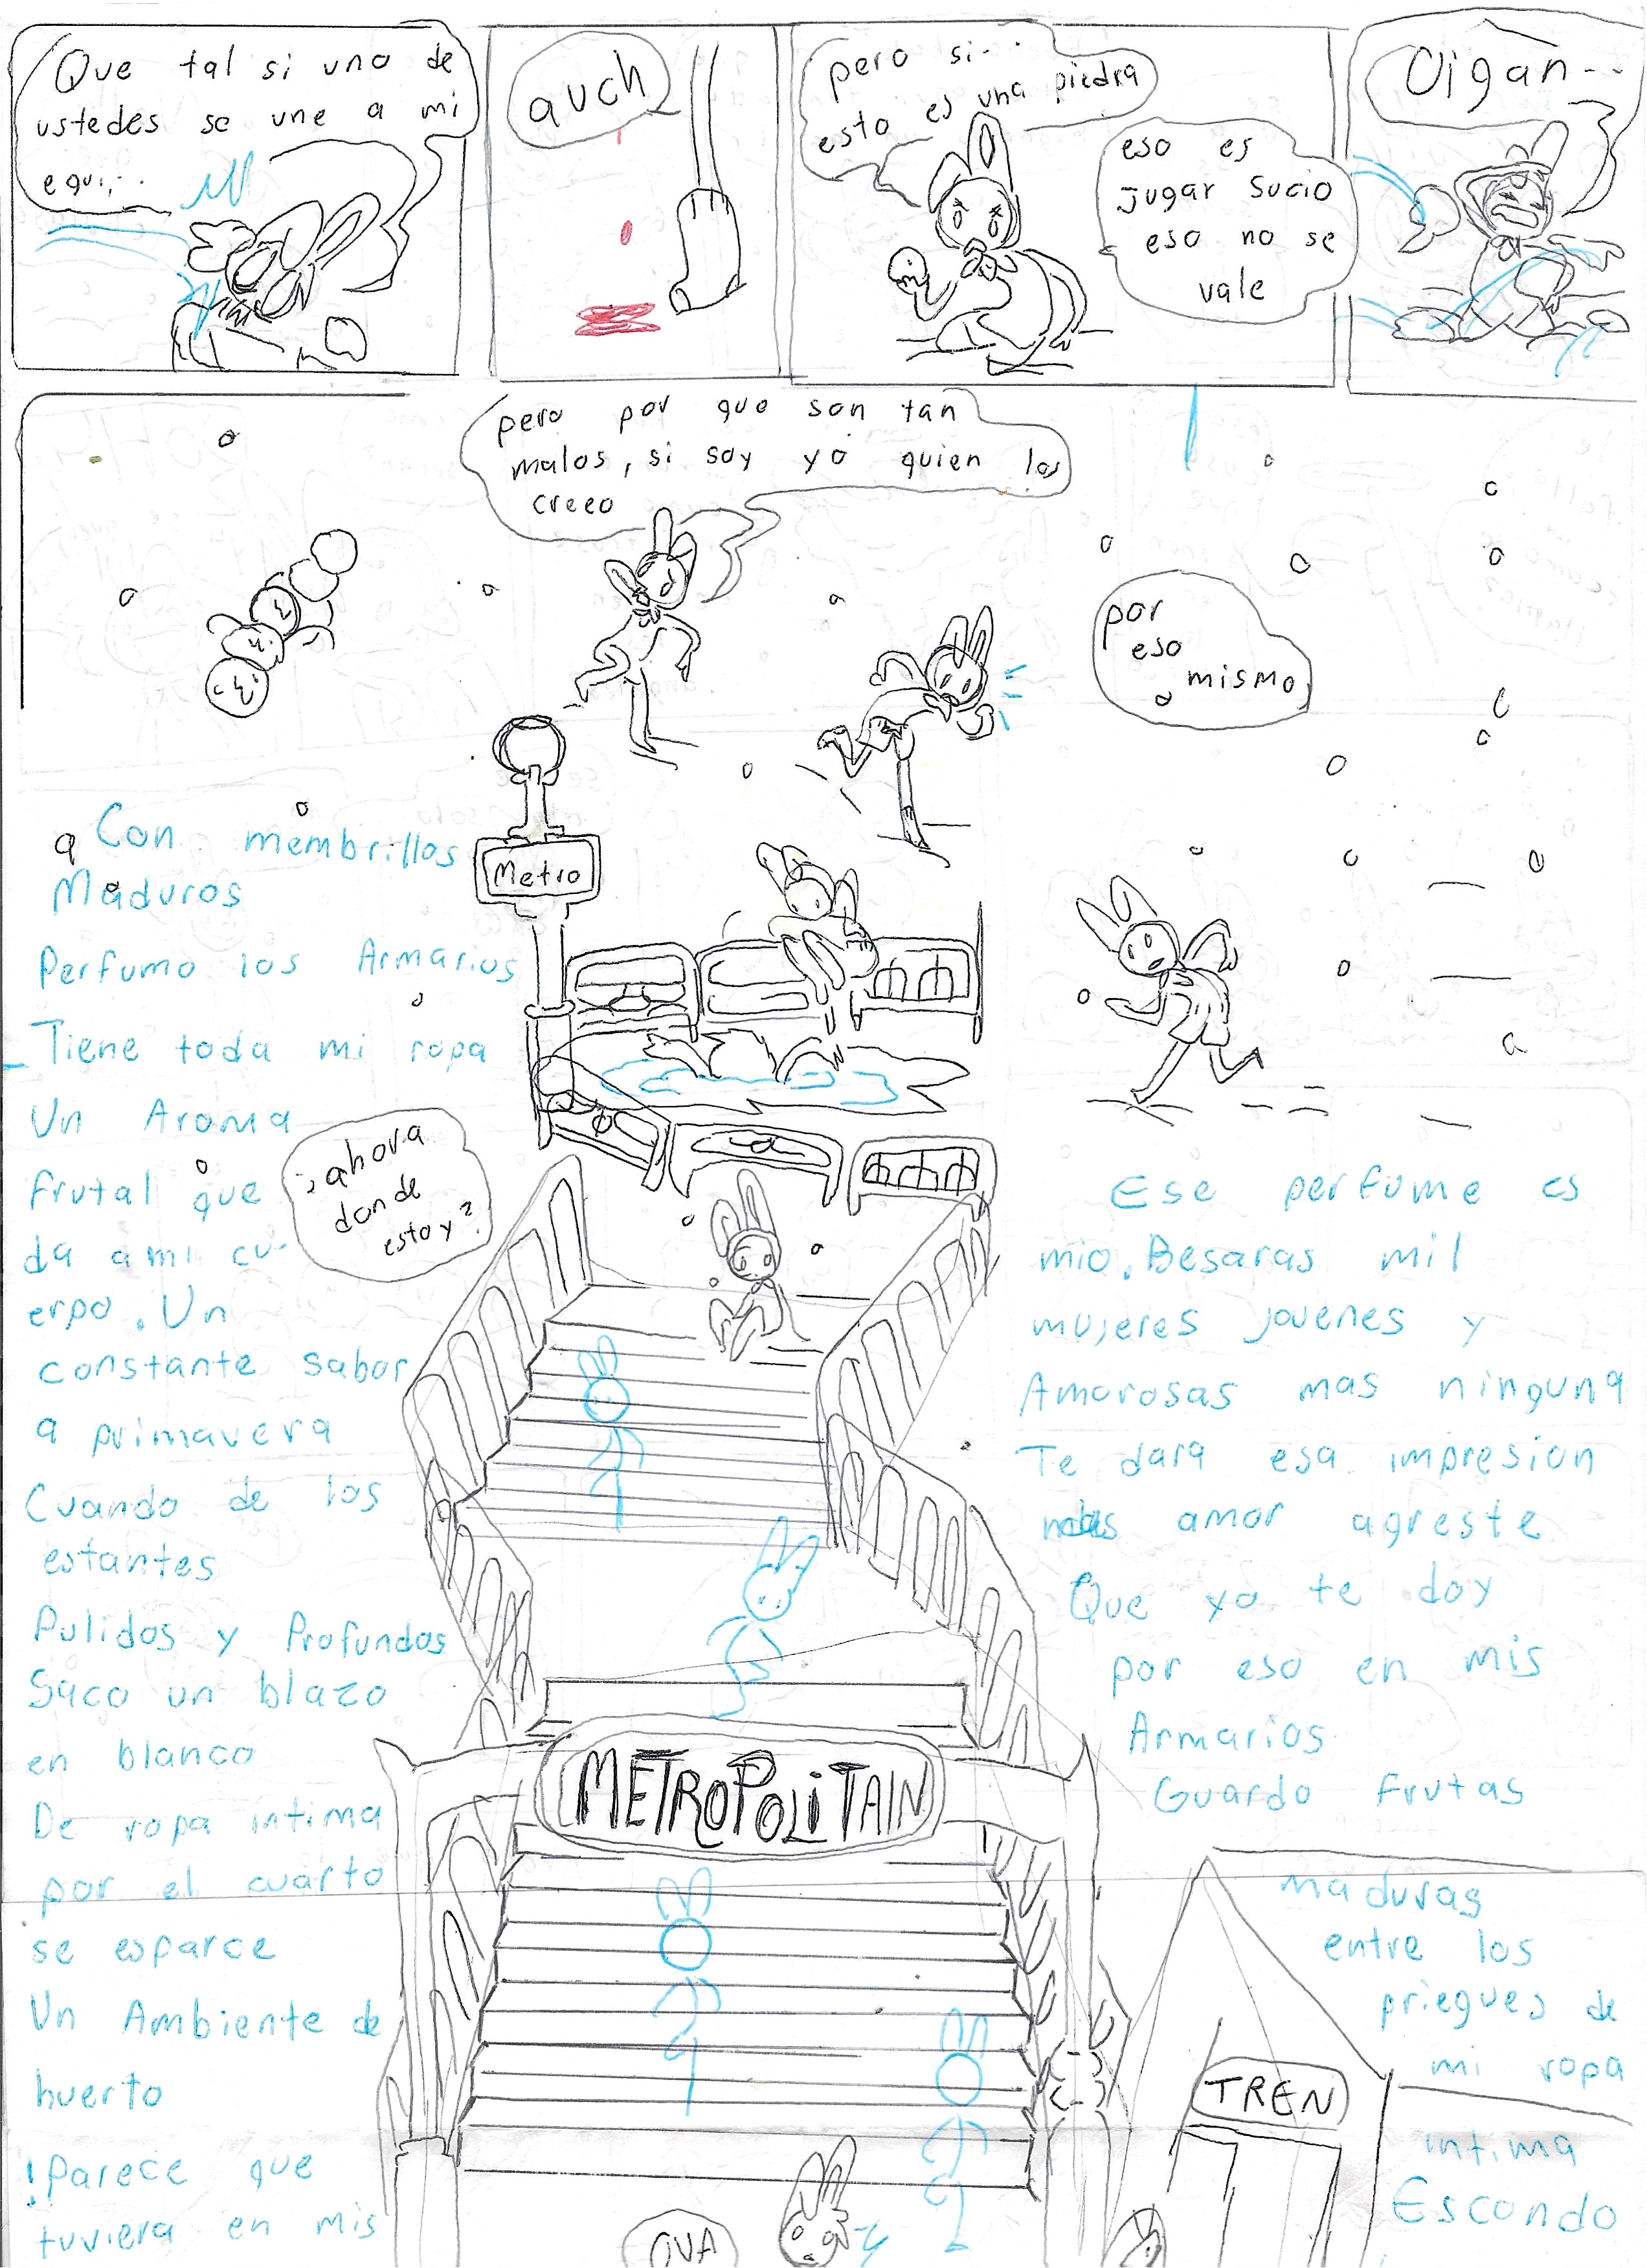 Que tal si uno de
ustedes se une a mi
equi,..
auch
pero si...
esto es una piedra
eso es
jugar sucio
eso no se
vale
Oigan...
pero por que son tan
malos, si soy yo quien los
creeo
por
eso
mismo
Metro
¿ahora
donde
estoy?
Con membrillos
Maduros
Perfumo los Armarios
Tiene toda mi ropa
Un Aroma
frutal que
da a mi cu-
erpo. Un
constante sabor
a primavera
Cuando de los
estantes
Pulidos y Profundos
Saco un blazo
en blanco
De ropa intima
por el cuarto
se esparce
Un Ambiente de
huerto
!Parece que
tuviera en mis
Ese perfume es
mio. Besaras mil
mujeres jovenes y
Amorosas mas ninguna
Te dara esa impresion
amor agreste
Que yo te doy
por eso en mis
Armarios
Guardo frutas
maduras
entre los
priegues de
mi ropa
intima
Escondo
METROPOLITAIN
TREN